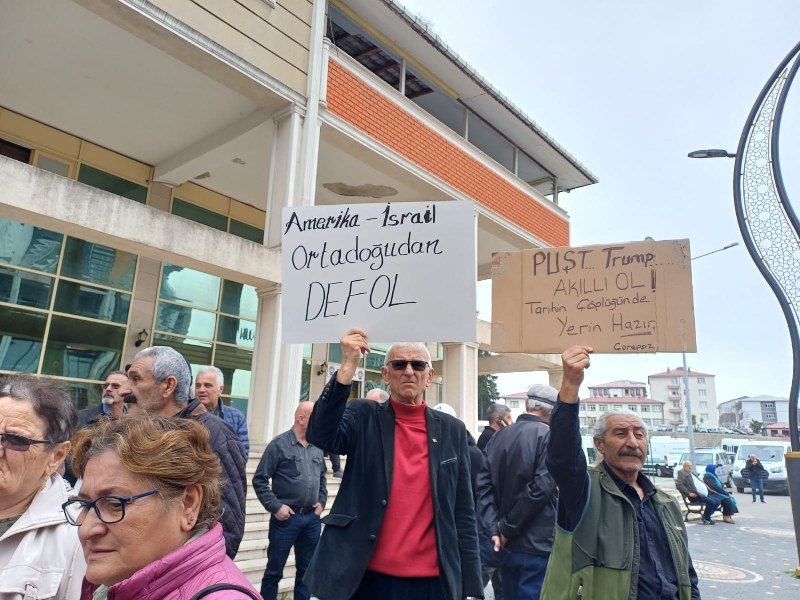 Amerika - İsrail
Ortadoğudan
DEFOL
PUŞT Trump
AKILLI OL!
Tarihin Çöplüğünde
Yerin Hazır.